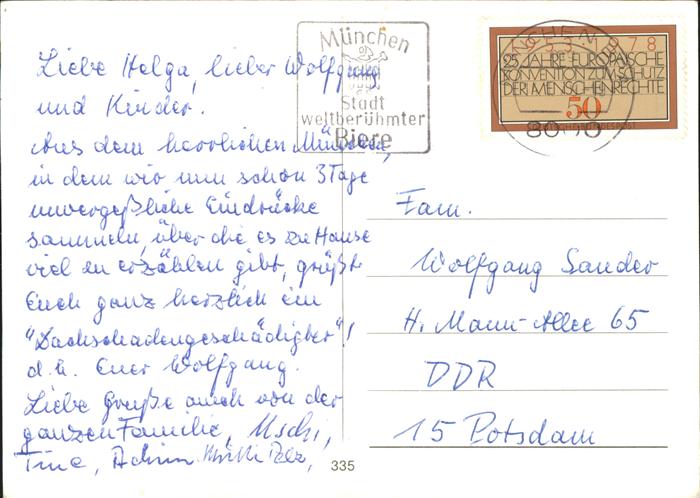 Liebe Helga, lieber Wolfgang
und Kinder.
Aus dem herrlichen München,
in dem wir nun schon 3 Tage
unvergeßliche Eindrücke
sammeln, über die es zu Hause
viel zu erzählen gibt, grüßt
Euch ganz herzlich ein
"Dachschadengeschädigter"!
d.h. Euer Wolfgang.
Liebe Grüße auch von der
ganzen Familie, Uschi,
Tine, Achim
335
München
Stadt
weltberühmter
Biere
25 JAHRE EUROPÄISCHE
KONVENTION ZUM SCHUTZ
DER MENSCHENRECHTE
50
Fam.
Wolfgang Sander
H. Mann-Allee 65
DDR
15 Potsdam